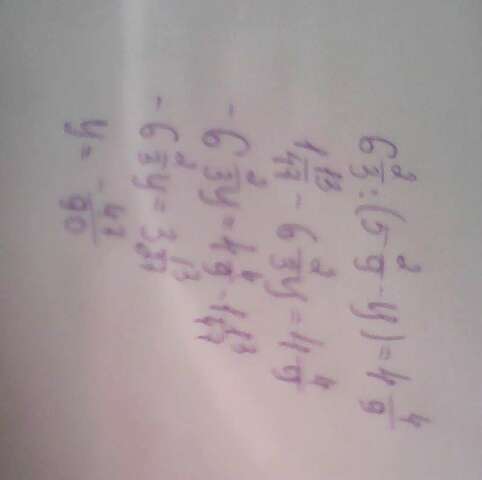 6 2/3 : (5 2/9 - y) = 4 4/9
1 13/47 - 6 2/3 y = 4 4/9
- 6 2/3 y = 4 4/9 - 1 13/47
- 6 2/3 y = 3
y = - 47/90